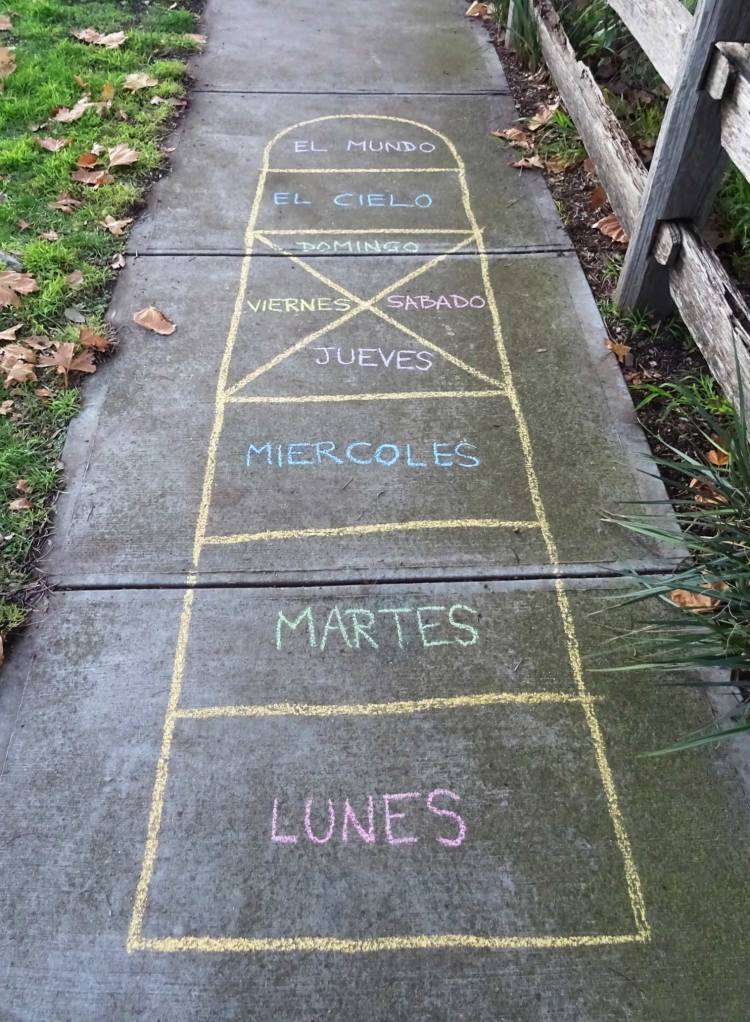 EL MUNDO
EL CIELO
DOMINGO
VIERNES SABADO
JUEVES
MIERCOLES
MARTES
LUNES